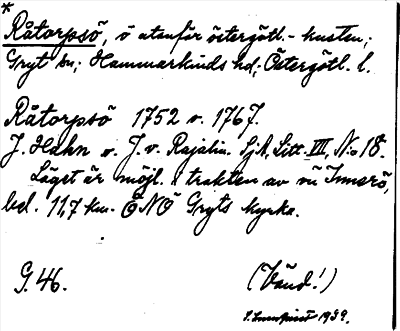 *
Råtorpsö, ö utanför östergötl.-kusten;
Gryt sn; Hammarkinds hd; Östergötl. l.
Råtorpsö 1752 o. 1767.
J. Hahn o. J. v. Rajalin. Sj.A. Litt. VIII, N:o 18.
Läget är möjl. i trakten av nu Innerö,
bel. 11,7 km. ÖNÖ Gryts kyrka.
G. 46.
(Vänd!)
1939.